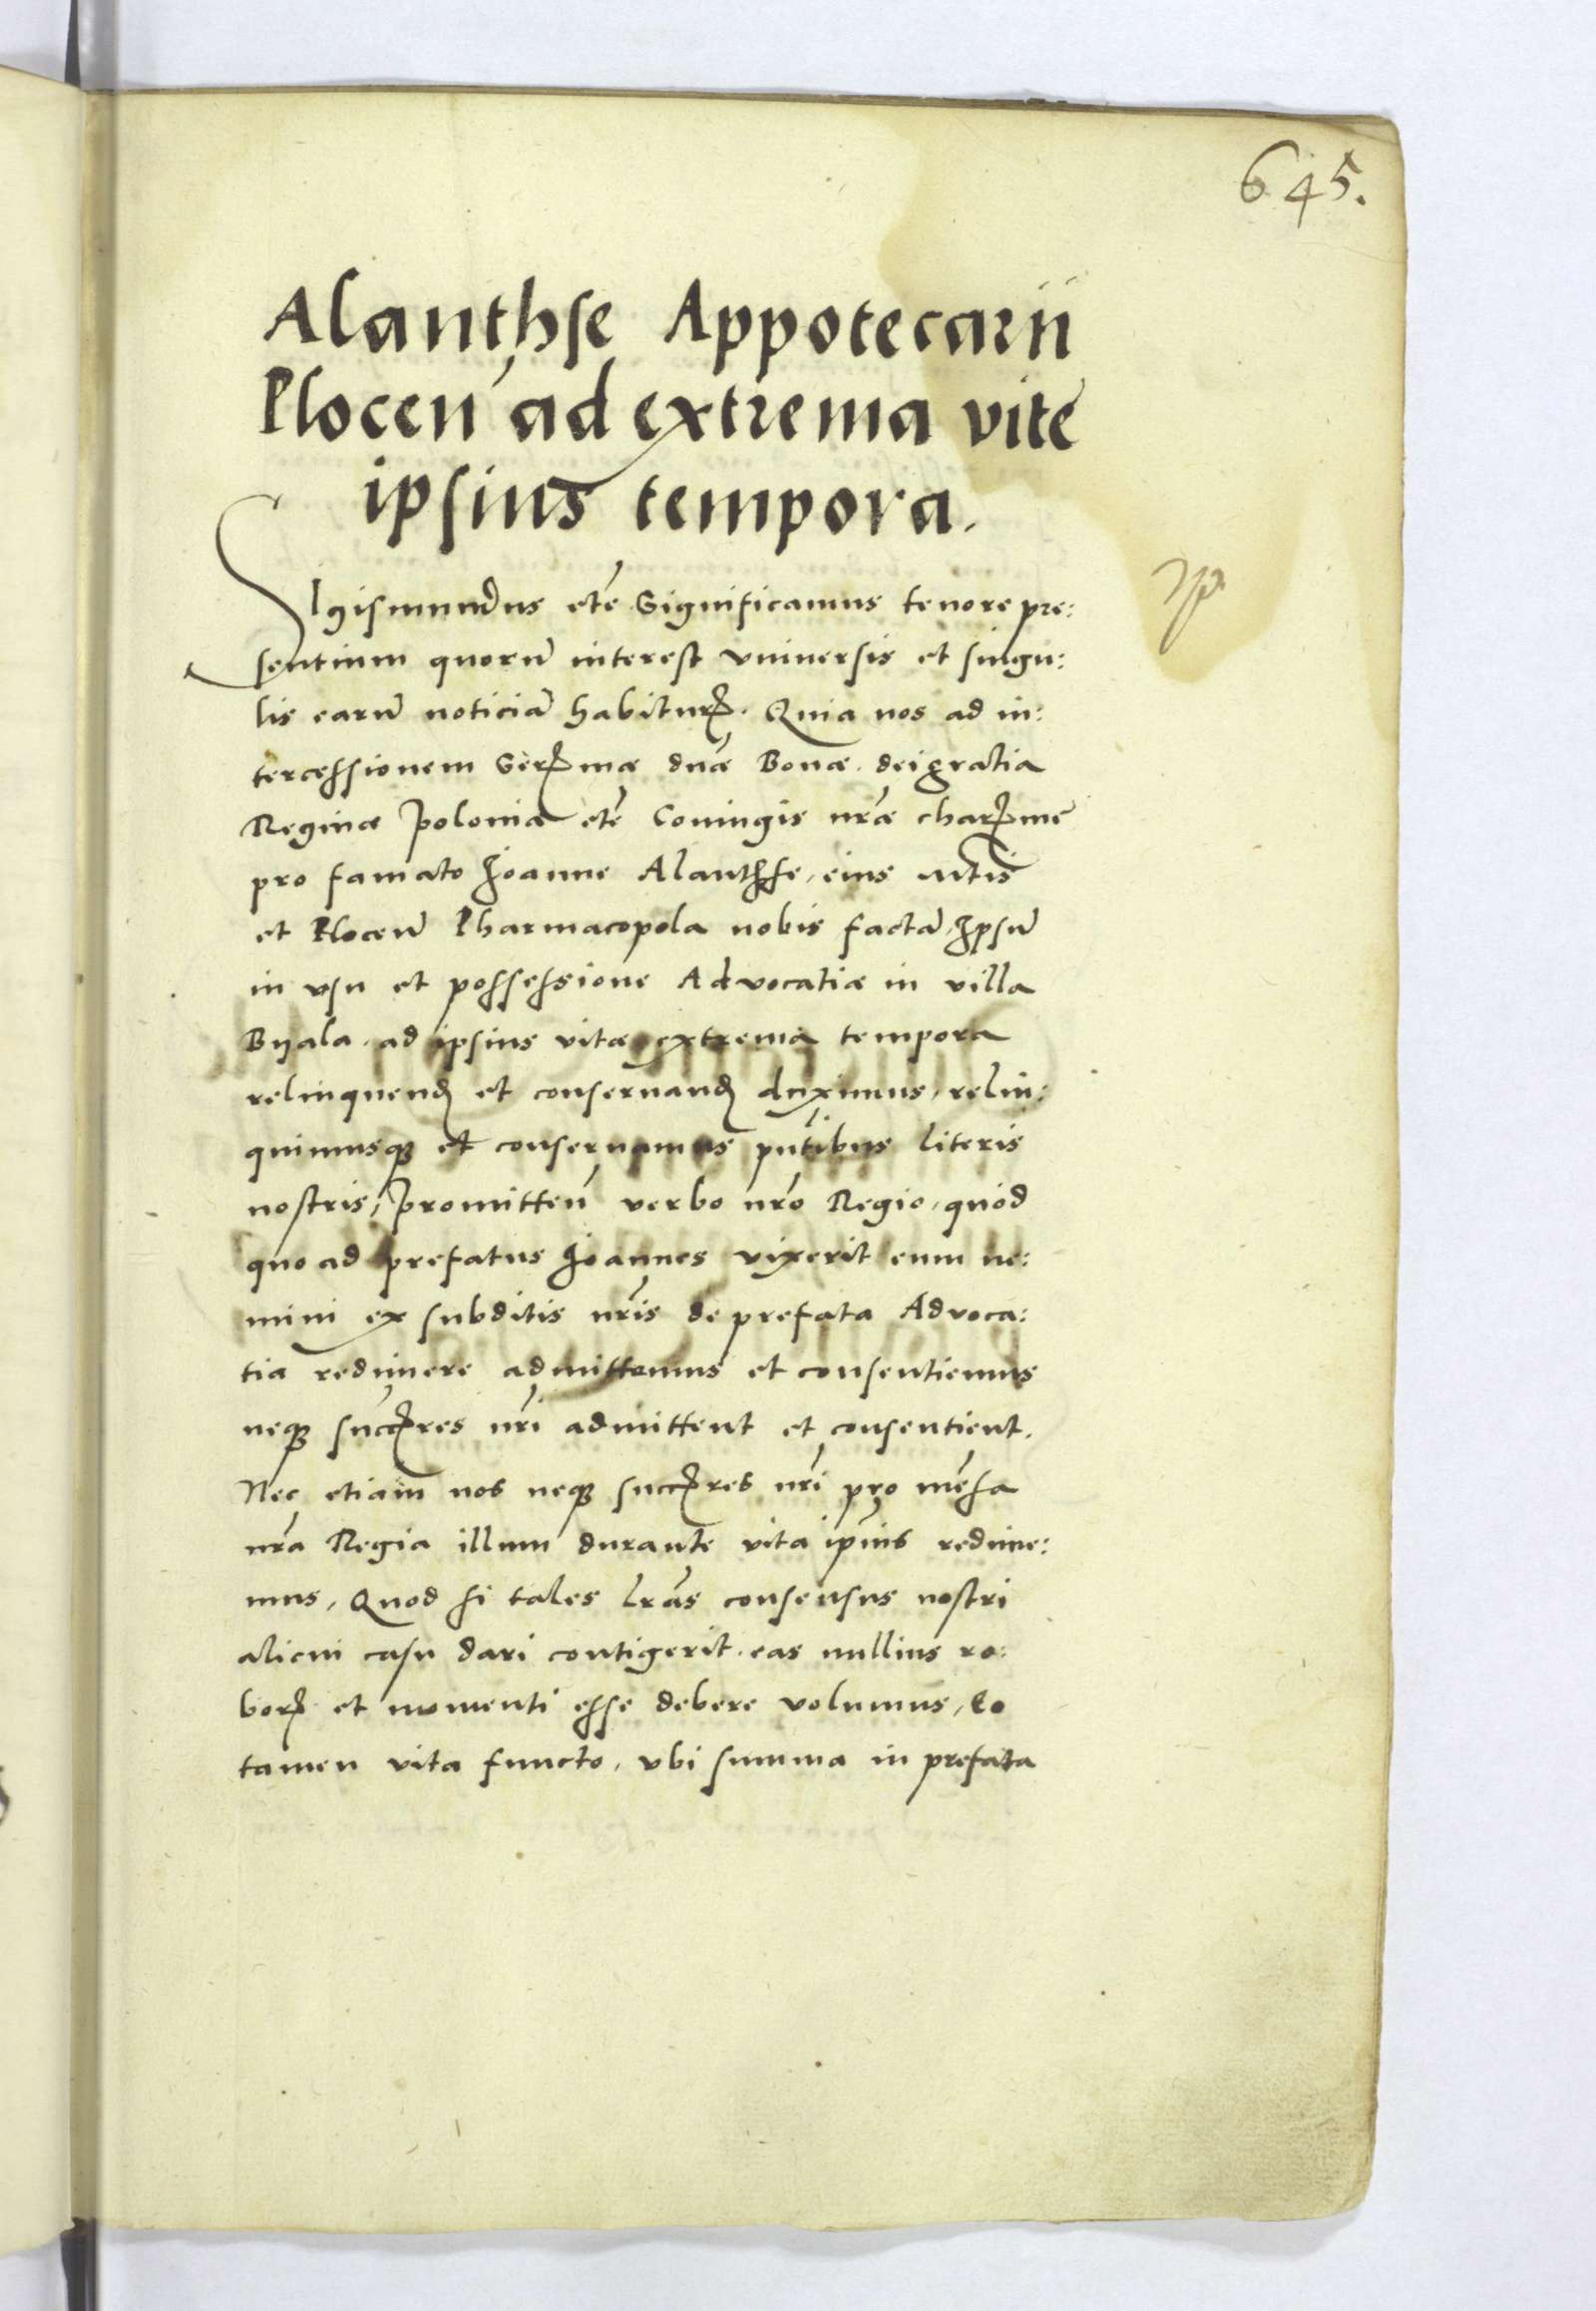 645.
Alanthse Appotecarii
Plocen̄ ad extrema vite
ipsius tempora.
Sigismundus etc̄ Significamus tenore pre:
sentium quorū interest vniuersis et singu:
lis earū noticiā habiturꝭ. Quia nos ad in:
tercessionem Serꝭmæ dn̄æ Bonæ dei gratia
Reginæ Poloniæ etc̄ Coniugis nr̄æ charꝭme
pro famato Joanne Alanthse, eius Mt̄is
et Plocen̄ Pharmacopola nobis factā, Ipsū
in vsu et possessione Advocatiæ in villa
Byala ad ipsius vitæ extrema tempora
relinquendꝭ et conseruandꝭ duximus, relin:
quimusqꝫ et conseruamus pn̄tibus literis
nostris, Promitten̄ verbo nr̄o Regio, quòd
quo ad prefatus Joannes vixerit eum ne:
mini ex subditis nr̄is de prefata Advoca:
tia redimere admittemus et consentiemus
neqꝫ succꝭres nr̄i admittent et consentient.
Nec etiam nos neqꝫ succꝭres nr̄i pro mēsa
nr̄a Regia illum durante vita ip̄ius redime:
mus, Quod si tales lr̄as consensus nostri
alicui casu dari contigerit, eas nullius ro:
borꝭ et momenti esse debere volumus, Eo
tamen vita functo, vbi summa in prefata